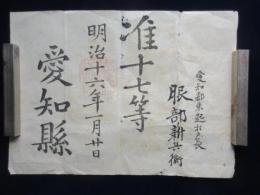 愛知郡東起村戸長
服部耕兵衛
准十七等
明治十六年一月廿日
愛知縣